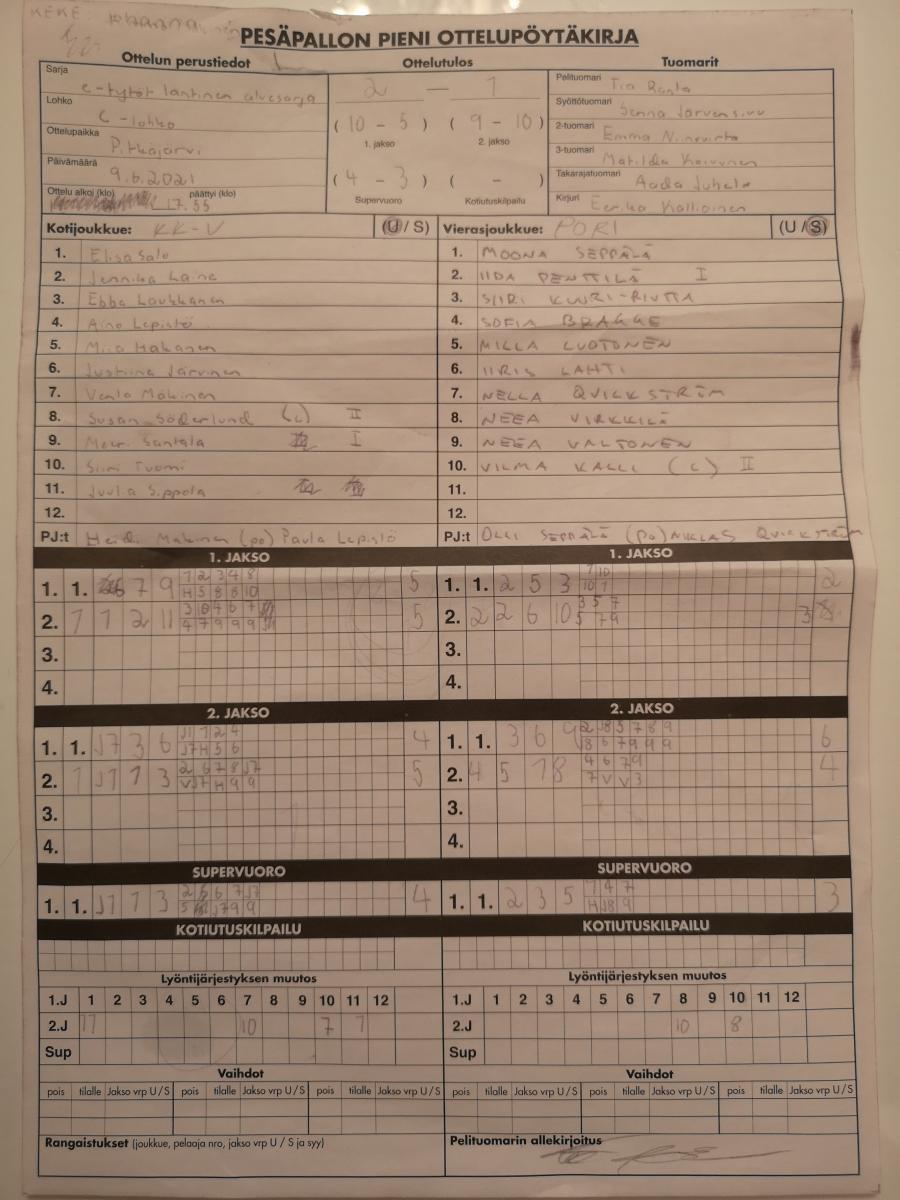 KEKE:
PESÄPALLON PIENI OTTELUPÖYTÄKIRJA
Ottelun perustiedot Ottelutulos Tuomarit
Sarja c-tytöt läntinen aluesarja
Lohko C-lohko
Ottelupaikka Pitkäjärvi
Päivämäärä 9.6.2021
Ottelu alkoi (klo) 17.55 päättyi (klo)
2 — 1
( 10 - 5 ) ( 9 - 10 )
1. jakso 2. jakso
( 4 - 3 ) ( - )
Supervuoro Kotiutuskilpailu
Pelituomari Tia Ranta
Syöttötuomari Senna Järvensivu
2-tuomari Emma Niinivirta
3-tuomari Matilda Koivunen
Takarajatuomari Aada Juhela
Kirjuri Eerika Kallioinen
Kotijoukkue: KK-V (U / S) Vierasjoukkue: PORI (U / S)
1. Elisa Salo 1. MOONA SEPPÄLÄ
2. Jennika Laine 2. IIDA PENTTILÄ I
3. Ebba Laukkanen 3. SIIRI KUURI-RIUTTA
4. Aino Lepistö 4. SOFIA BRAGGE
5. Miia Hakanen 5. MILLA LUOTONEN
6. Justiina Järvinen 6. IIRIS LAHTI
7. Venla Mäkinen 7. NELLA QUICKSTRÖM
8. Susan Söderlund (L) II 8. NEEA VIRKKILÄ
9. Meeri Santala I 9. NEEA VALTONEN
10. Siiri Tuomi 10. VILMA KALLI (L) II
11. Juulia Sippola 11.
12. 12.
PJ:t Heidi Mäkinen (po) Paula Lepistö PJ:t OLLI SEPPÄLÄ (PO) NIKLAS QUICKSTRÖM
1. JAKSO 1. JAKSO
1 2 3 4 8 1 10
1. 1. 6 7 9 5 1. 1. 2 5 3 2
H 5 8 8 10 10 1
3 10 4 6 7 3 5 7
2. 1 1 2 11 5 2. 2 2 6 10 3
4 7 9 9 9 5 7 9
3. 3.
4. 4.
2. JAKSO 2. JAKSO
J1 1 2 4 2 J8 5 7 8 9
1. 1. J7 3 6 4 1. 1. 3 6 9 6
J7 H 5 6 J8 6 7 9 9 9
2 6 7 8 J7 4 6 7 9
2. 1 J1 1 3 5 2. 4 5 1 8 4
V J7 H 9 9 7 V V 3
3. 3.
4. 4.
SUPERVUORO SUPERVUORO
2 6 7 J7 1 4 7
1. 1. J1 1 3 4 1. 1. 2 3 5 3
5 J7 9 9 H J8 9
KOTIUTUSKILPAILU KOTIUTUSKILPAILU
Lyöntijärjestyksen muutos Lyöntijärjestyksen muutos
1.J 1 2 3 4 5 6 7 8 9 10 11 12 1.J 1 2 3 4 5 6 7 8 9 10 11 12
2.J 11 10 7 1 2.J 10 8
Sup Sup
Vaihdot Vaihdot
pois tilalle Jakso vrp U / S pois tilalle Jakso vrp U / S pois tilalle Jakso vrp U / S pois tilalle Jakso vrp U / S pois tilalle Jakso vrp U / S pois tilalle Jakso vrp U / S
Rangaistukset (joukkue, pelaaja nro, jakso vrp U / S ja syy) Pelituomarin allekirjoitus